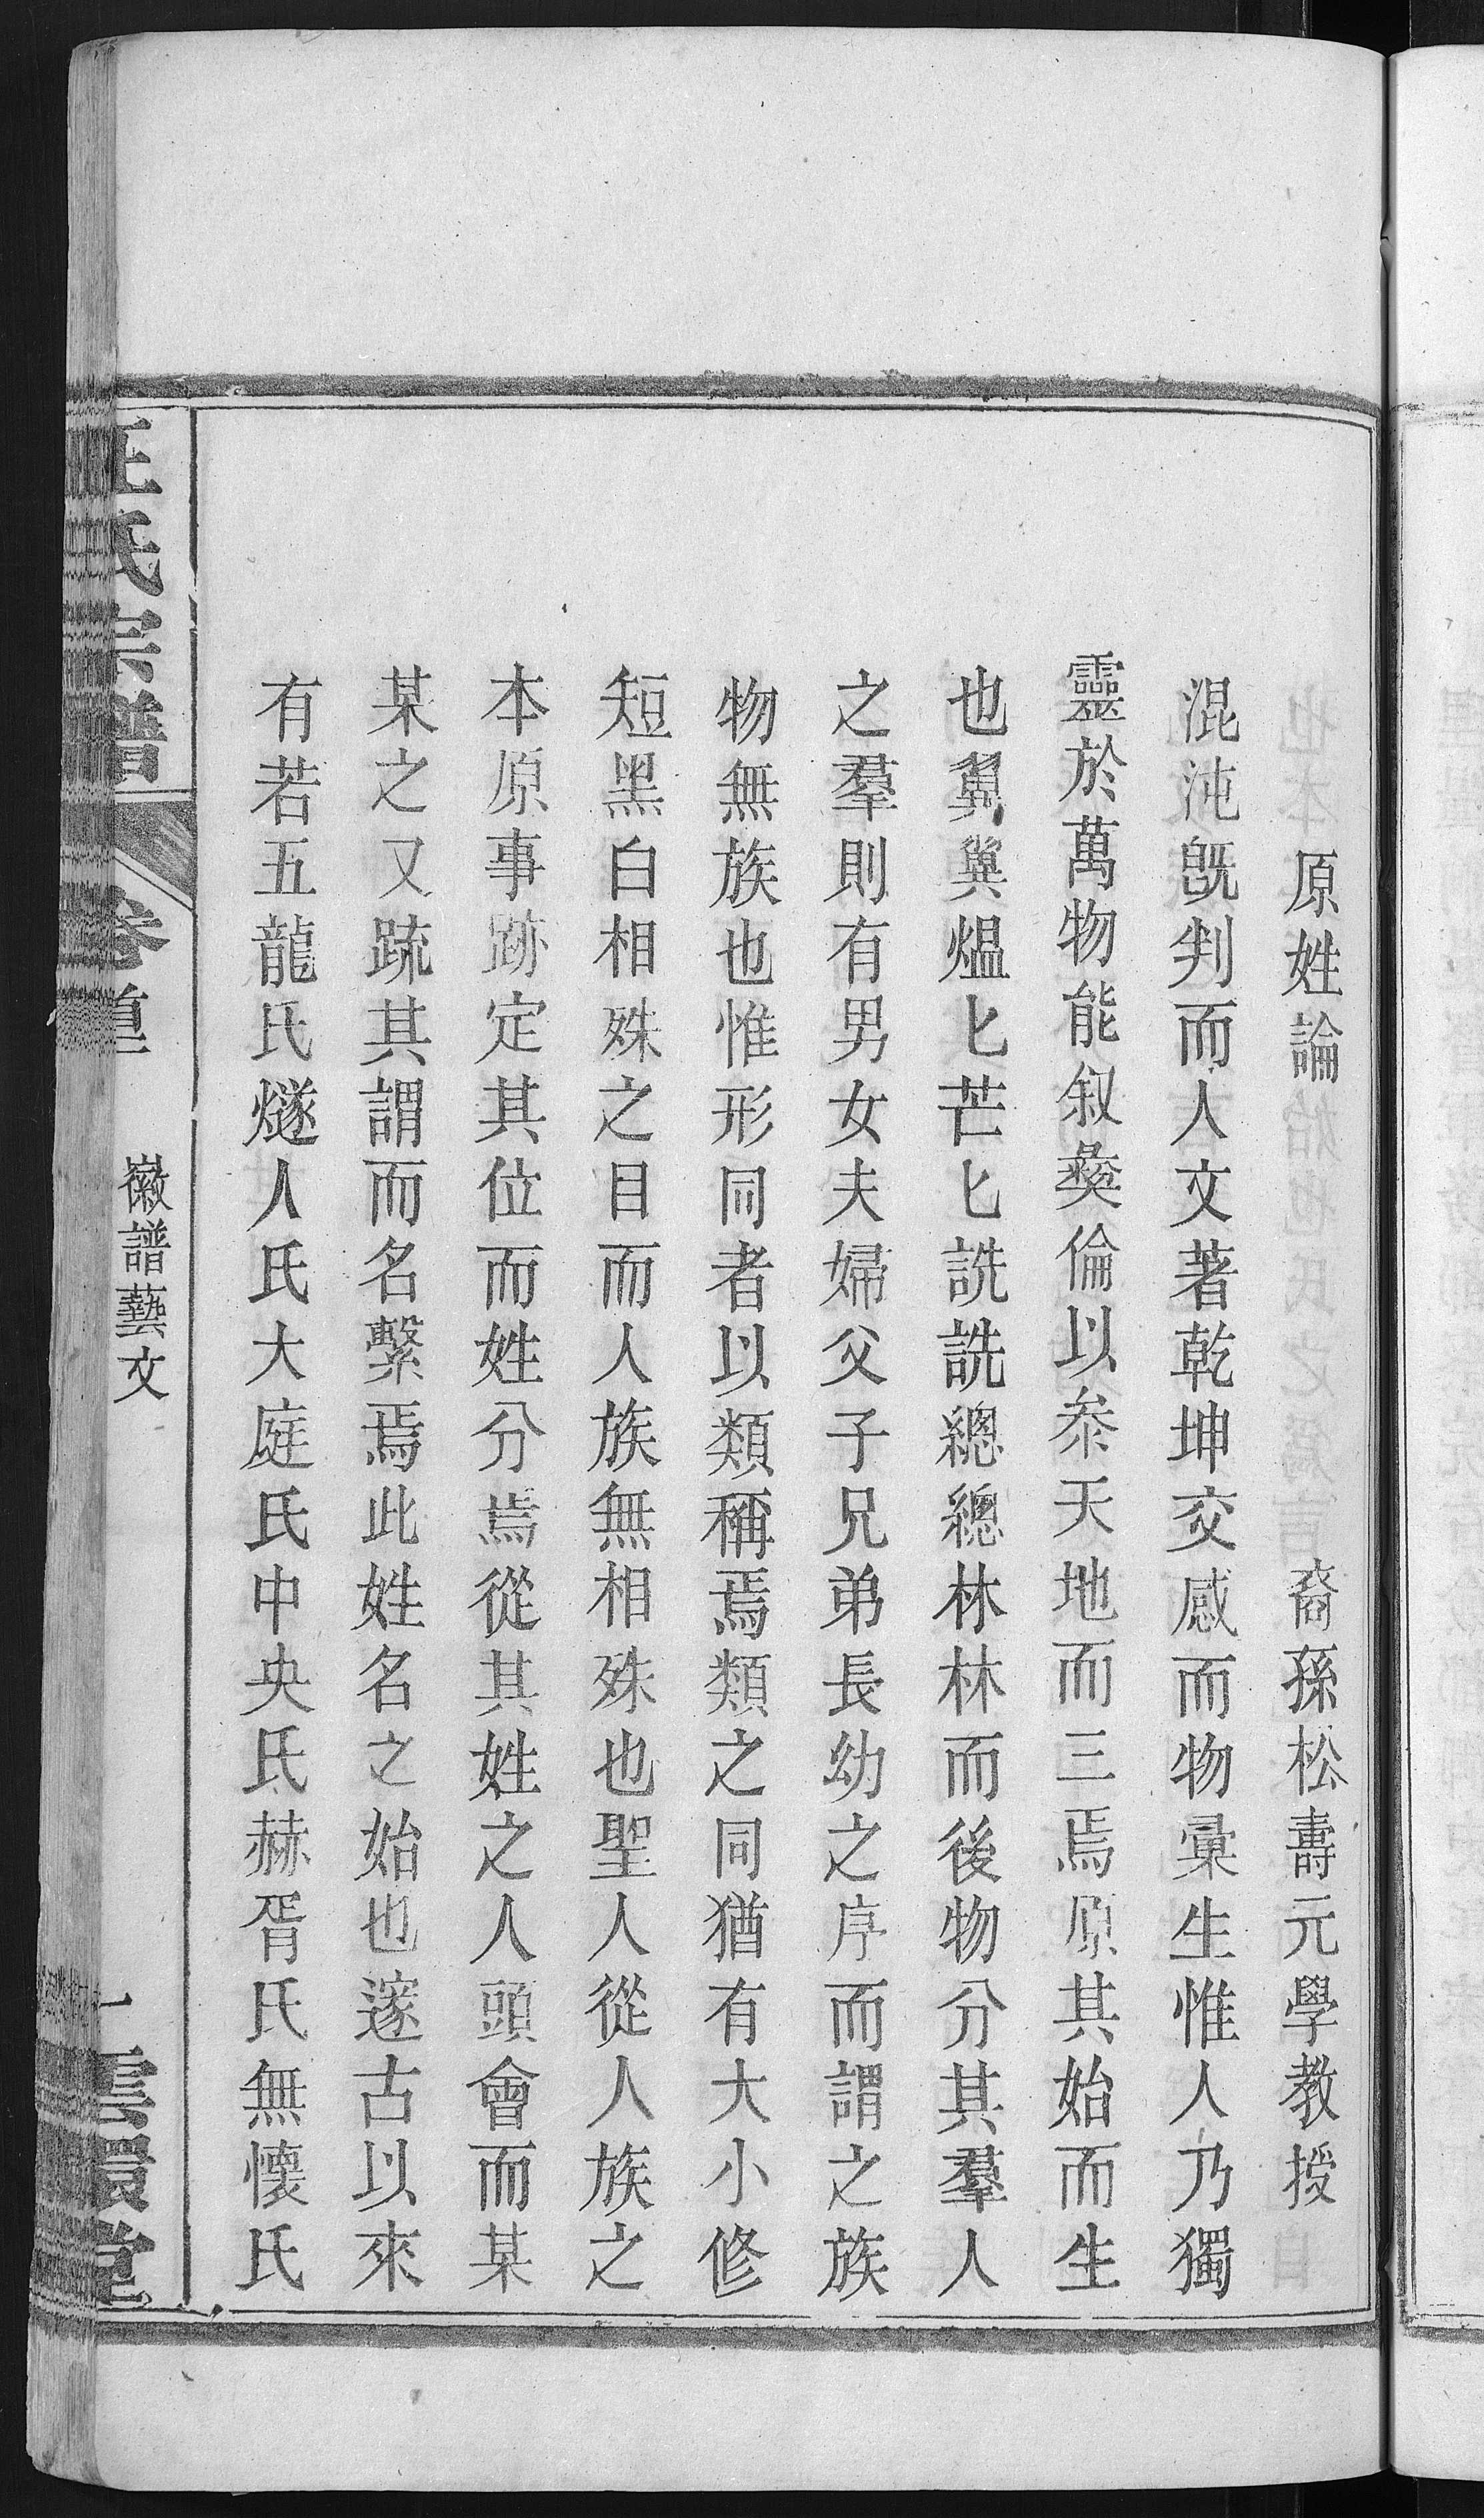 原姓論　裔孫松壽元學教授
混沌旣判而人文著乾坤交感而物彙生惟人乃獨
靈於萬物能叙彜倫以叅天地而三焉原其始而生
也翼翼煴匕芒匕詵詵總總林林而後物分其羣人
之羣則有男女夫婦父子兄弟長幼之序而謂之族
物無族也惟形同者以類稱焉類之同猶有大小修
短黑白相殊之目而人族無相殊也聖人從人族之
本原事跡定其位而姓分焉從其姓之人頭會而某
某之又疏其謂而名繫焉此姓名之始也邃古以來
有若五龍氏燧人氏大庭氏中央氏赫胥氏無懷氏
汪氏宗譜　卷首　徽譜藝文　一　雲環堂